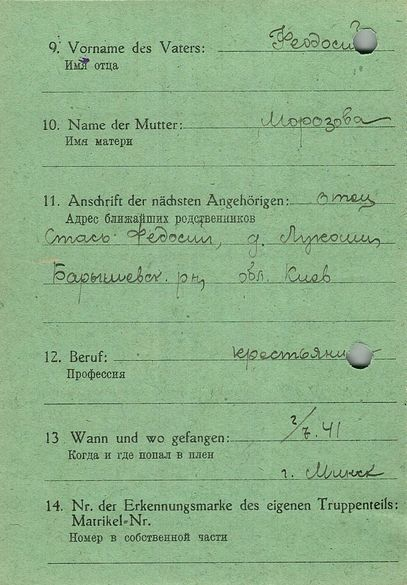 9. Vorname des Vaters: Феодосий
Имя отца
10. Name der Mutter: Морозова
Имя матери
11. Anschrift der nächsten Angehörigen: отец
Адрес ближайших родственников
Стась Федосий, д. Лукаши,
Барышевск. рн, обл. Киев
12. Beruf: крестьянин
Профессия
13 Wann und wo gefangen: 2/7.41
Когда и где попал в плен
г. Минск
14. Nr. der Erkennungsmarke des eigenen Truppenteils:
Matrikel-Nr.
Номер в собственной части